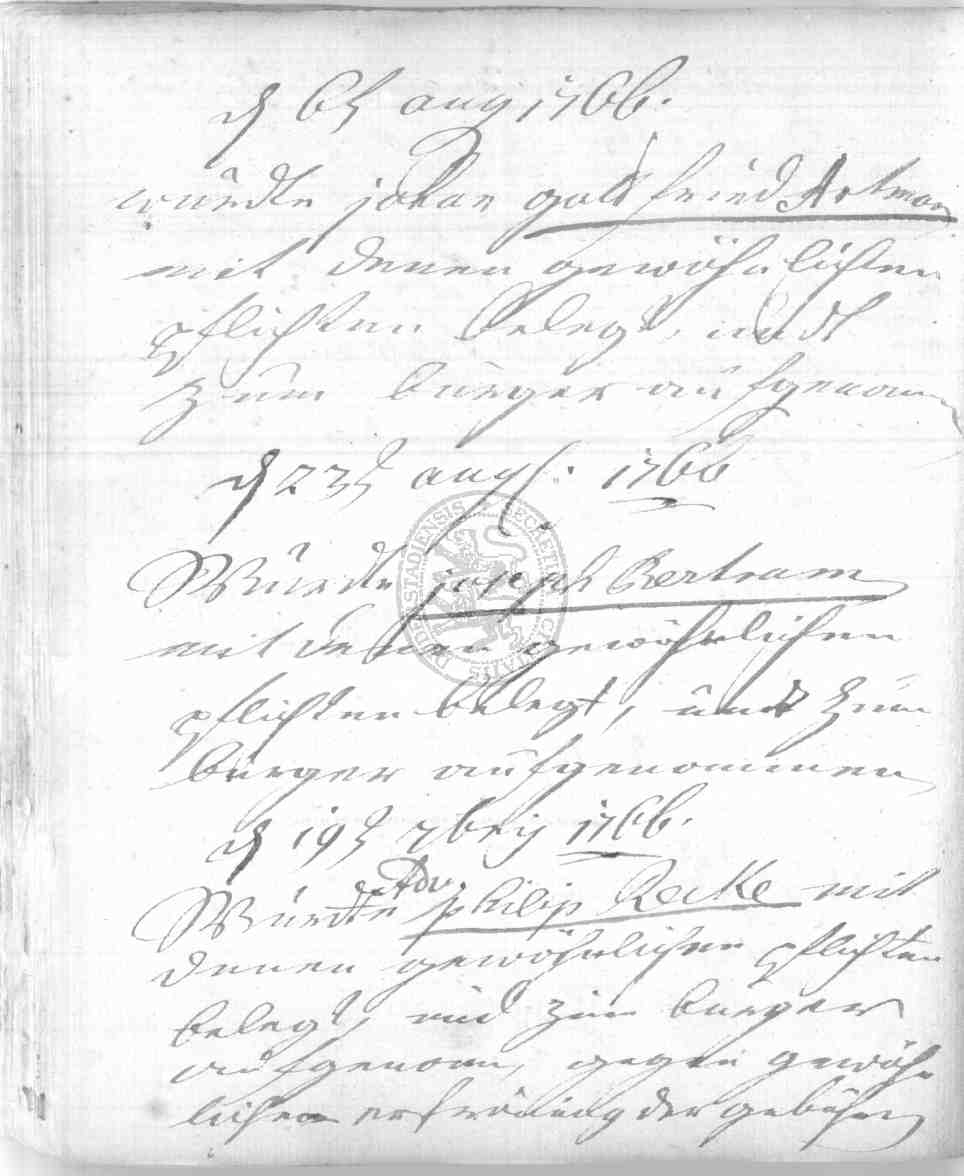 d 6t aug 1766.
wurdte johan gottfried Artman
mit denen gewöhnlichen
pflichten belegt, undt
zum burger aufgenom
d 23t aug. 1766
Wurdte joseph Bertram
mit denen gewöhnlichen
pflichten belegt, und zum
burger aufgenommen
d 19t 7breis 1766.
Wurdte Adv. philip Recke mit
denen gewöhnlichen pflichten
belegt, und zum burger
aufgenom, gegen gewöhn
lichen der gebühren